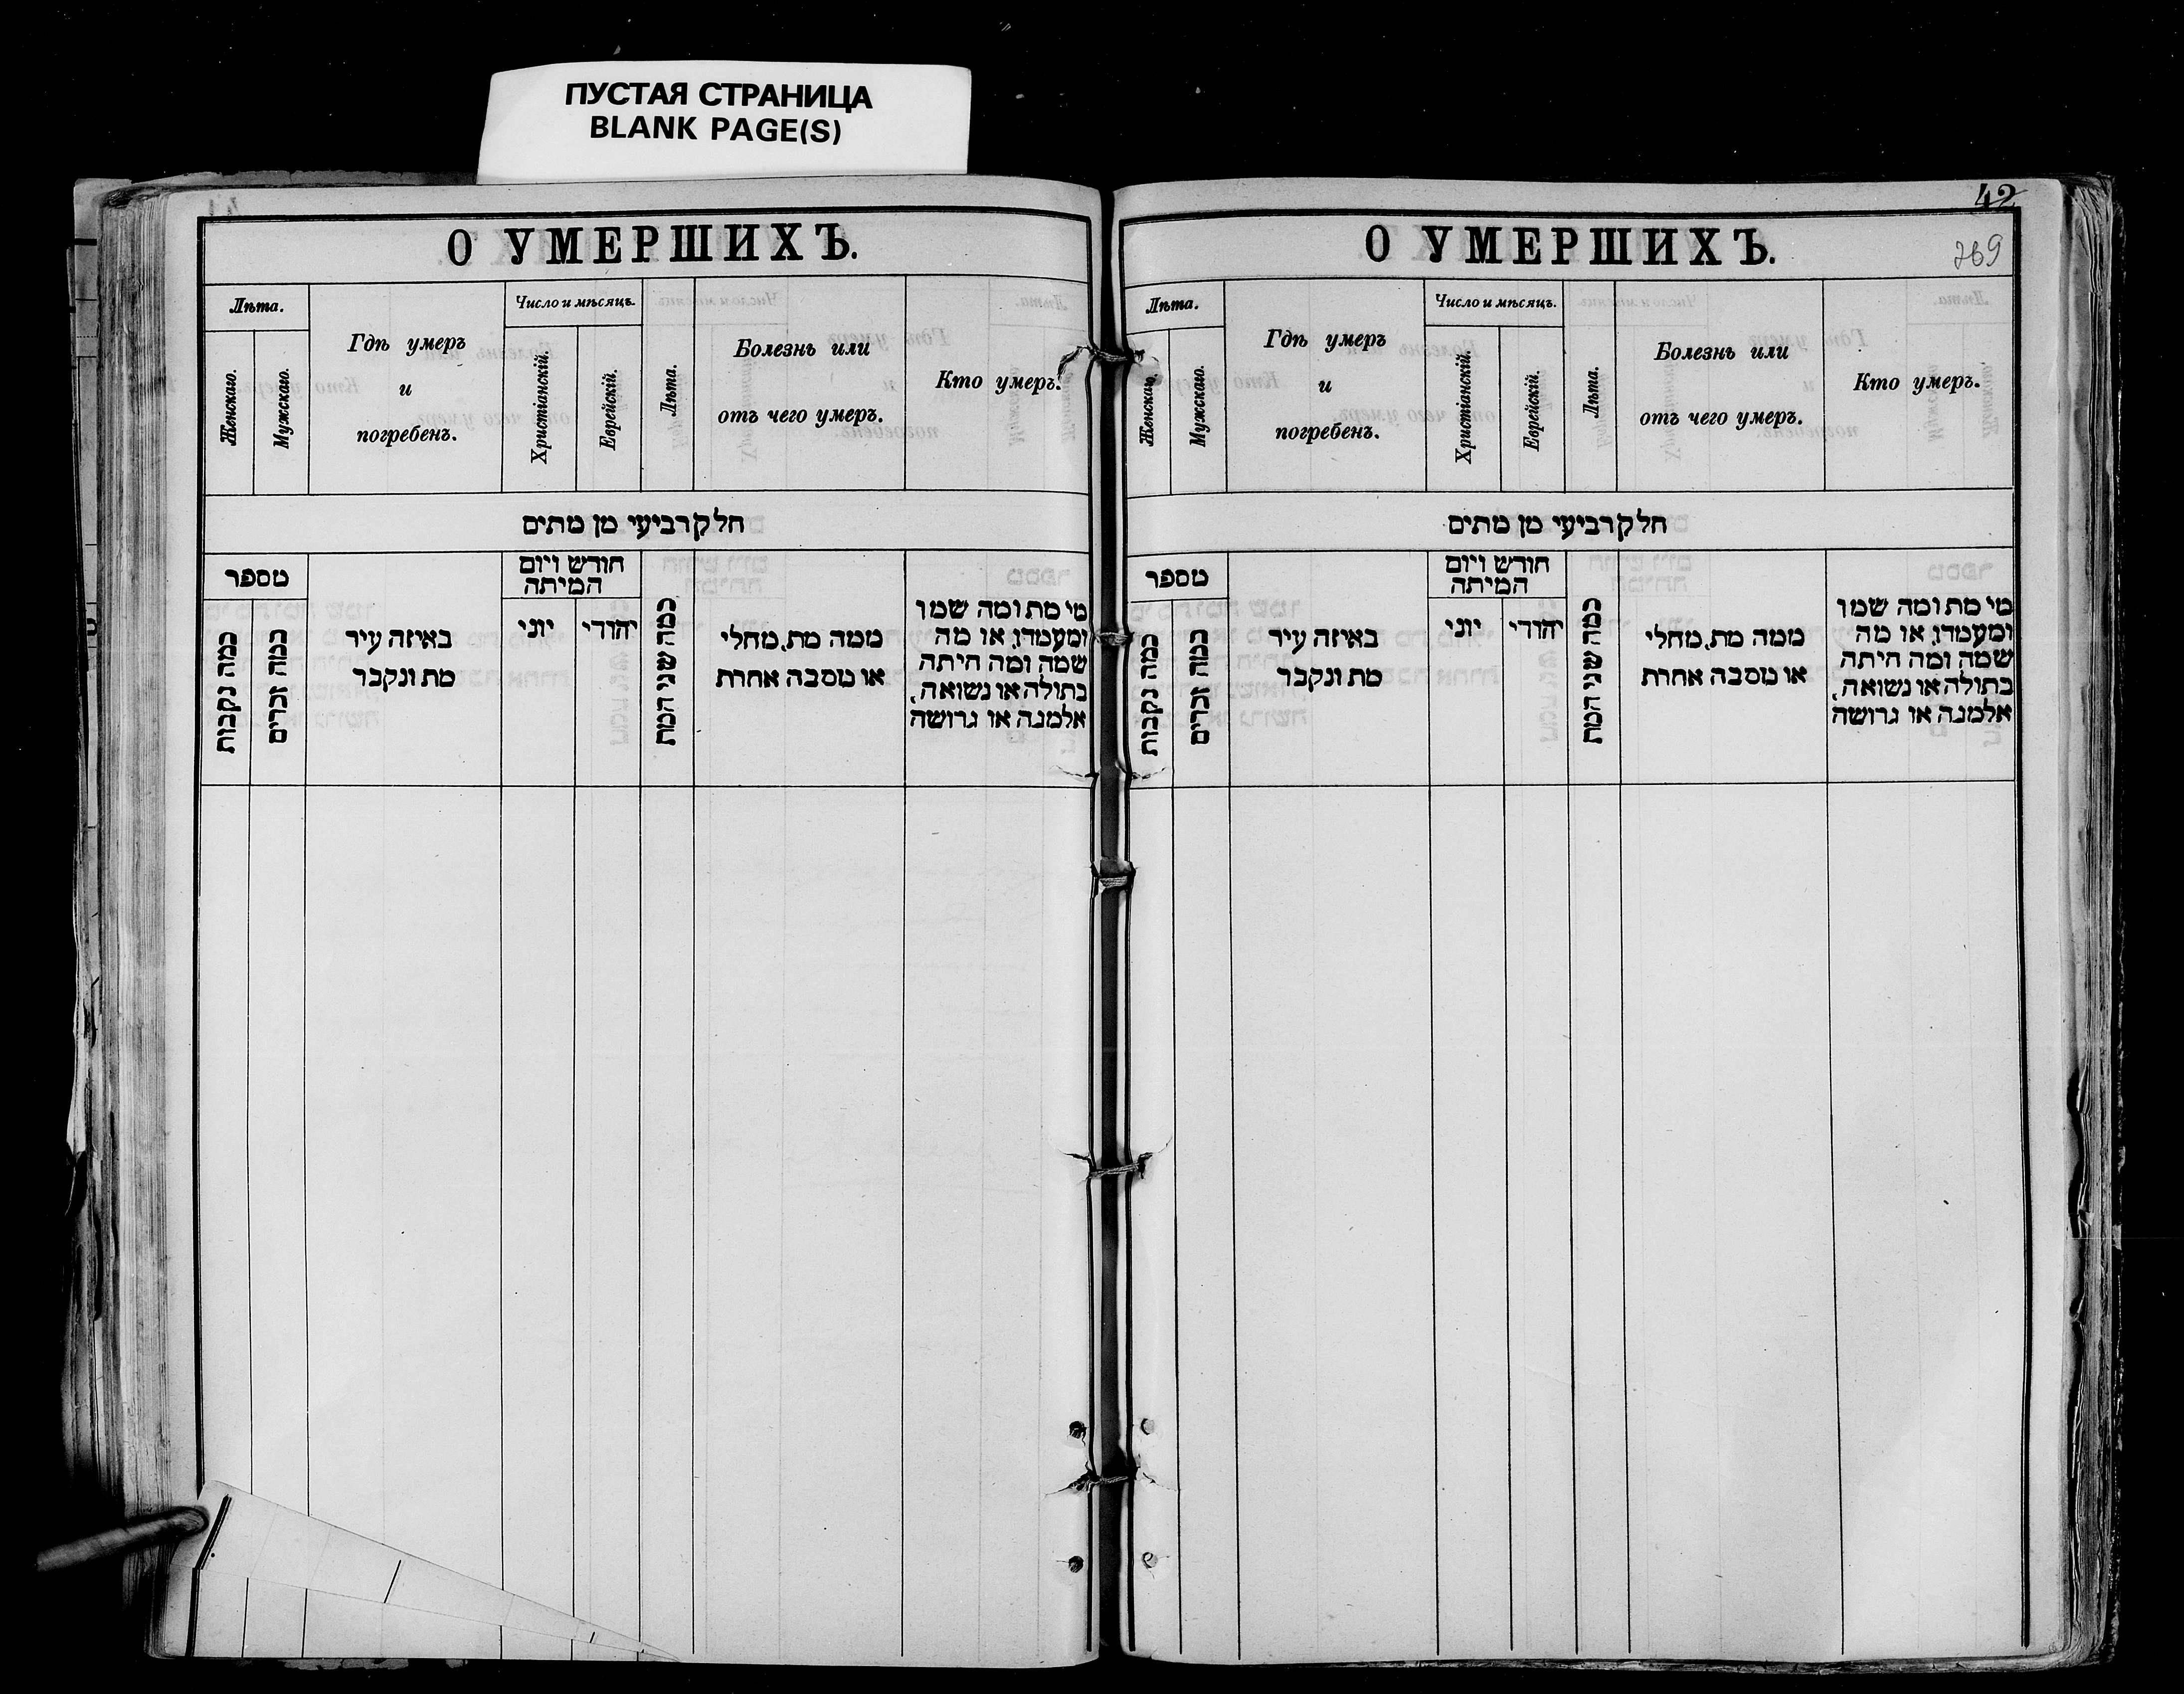 ПУСТАЯ СТРАНИЦА
BLANK PAGE(S)
О УМЕРШИХЪ.
Лѣта.
Женскаго.
Мужскаго.
Гдѣ умеръ
и
погребенъ.
Число и мѣсяцъ.
Христіанскій.
Еврейскій.
Лѣта.
Болезнь или
отъ чего умеръ.
Кто умеръ.
חלק רביעי מן מתים
מספר
כמה נקבות
כמה זכרים
באיזה עיר
מת ונקבר
חודש ויום
המיתה
יוני
יהודי
כמה שני המת
ממה מת, מחלי
או מסבה אחרת
מי מת ומה שמו
ומעמדו, או מה
שמה ומה היתה
בתולה או נשואה,
אלמנה או גרושה
42
269
О УМЕРШИХЪ.
Лѣта.
Женскаго.
Мужскаго.
Гдѣ умеръ
и
погребенъ.
Число и мѣсяцъ.
Христіанскій.
Еврейскій.
Лѣта.
Болезнь или
отъ чего умеръ.
Кто умеръ.
חלק רביעי מן מתים
מספר
כמה נקבות
כמה זכרים
באיזה עיר
מת ונקבר
חודש ויום
המיתה
יוני
יהודי
כמה שני המת
ממה מת, מחלי
או מסבה אחרת
מי מת ומה שמו
ומעמדו, או מה
שמה ומה היתה
בתולה או נשואה,
אלמנה או גרושה